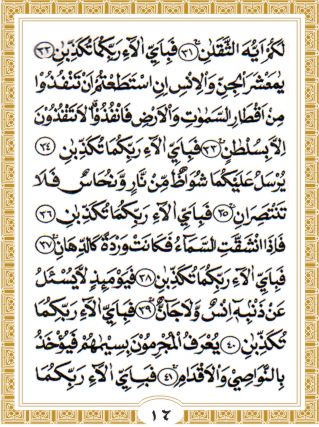 لَكُمْ أَيُّهَ الثَّقَلَانِ ﴿٣١﴾ فَبِأَيِّ آلَاءِ رَبِّكُمَا تُكَذِّبَانِ ﴿٣٢﴾
يَٰمَعْشَرَ الْجِنِّ وَالْإِنْسِ إِنِ اسْتَطَعْتُمْ أَنْ تَنْفُذُوا
مِنْ أَقْطَارِ السَّمَٰوَٰتِ وَالْأَرْضِ فَانْفُذُوا لَا تَنْفُذُونَ
إِلَّا بِسُلْطَٰنٍ ﴿٣٣﴾ فَبِأَيِّ آلَاءِ رَبِّكُمَا تُكَذِّبَٰنِ ﴿٣٤﴾
يُرْسَلُ عَلَيْكُمَا شُوَاظٌ مِنْ نَارٍ وَنُحَاسٌ فَلَا
تَنْتَصِرَانِ ﴿٣٥﴾ فَبِأَيِّ آلَاءِ رَبِّكُمَا تُكَذِّبَٰنِ ﴿٣٦﴾
فَإِذَا انْشَقَّتِ السَّمَاءُ فَكَانَتْ وَرْدَةً كَالدِّهَانِ ﴿٣٧﴾
فَبِأَيِّ آلَاءِ رَبِّكُمَا تُكَذِّبَٰنِ ﴿٣٨﴾ فَيَوْمَئِذٍ لَا يُسْئَلُ
عَنْ ذَنْبِهِ إِنْسٌ وَلَا جَانٌّ ﴿٣٩﴾ فَبِأَيِّ آلَاءِ رَبِّكُمَا
تُكَذِّبَٰنِ ﴿٤٠﴾ يُعْرَفُ الْمُجْرِمُونَ بِسِيمَٰهُمْ فَيُؤْخَذُ
بِالنَّوَاصِي وَالْأَقْدَامِ ﴿٤١﴾ فَبِأَيِّ آلَاءِ رَبِّكُمَا
١٤